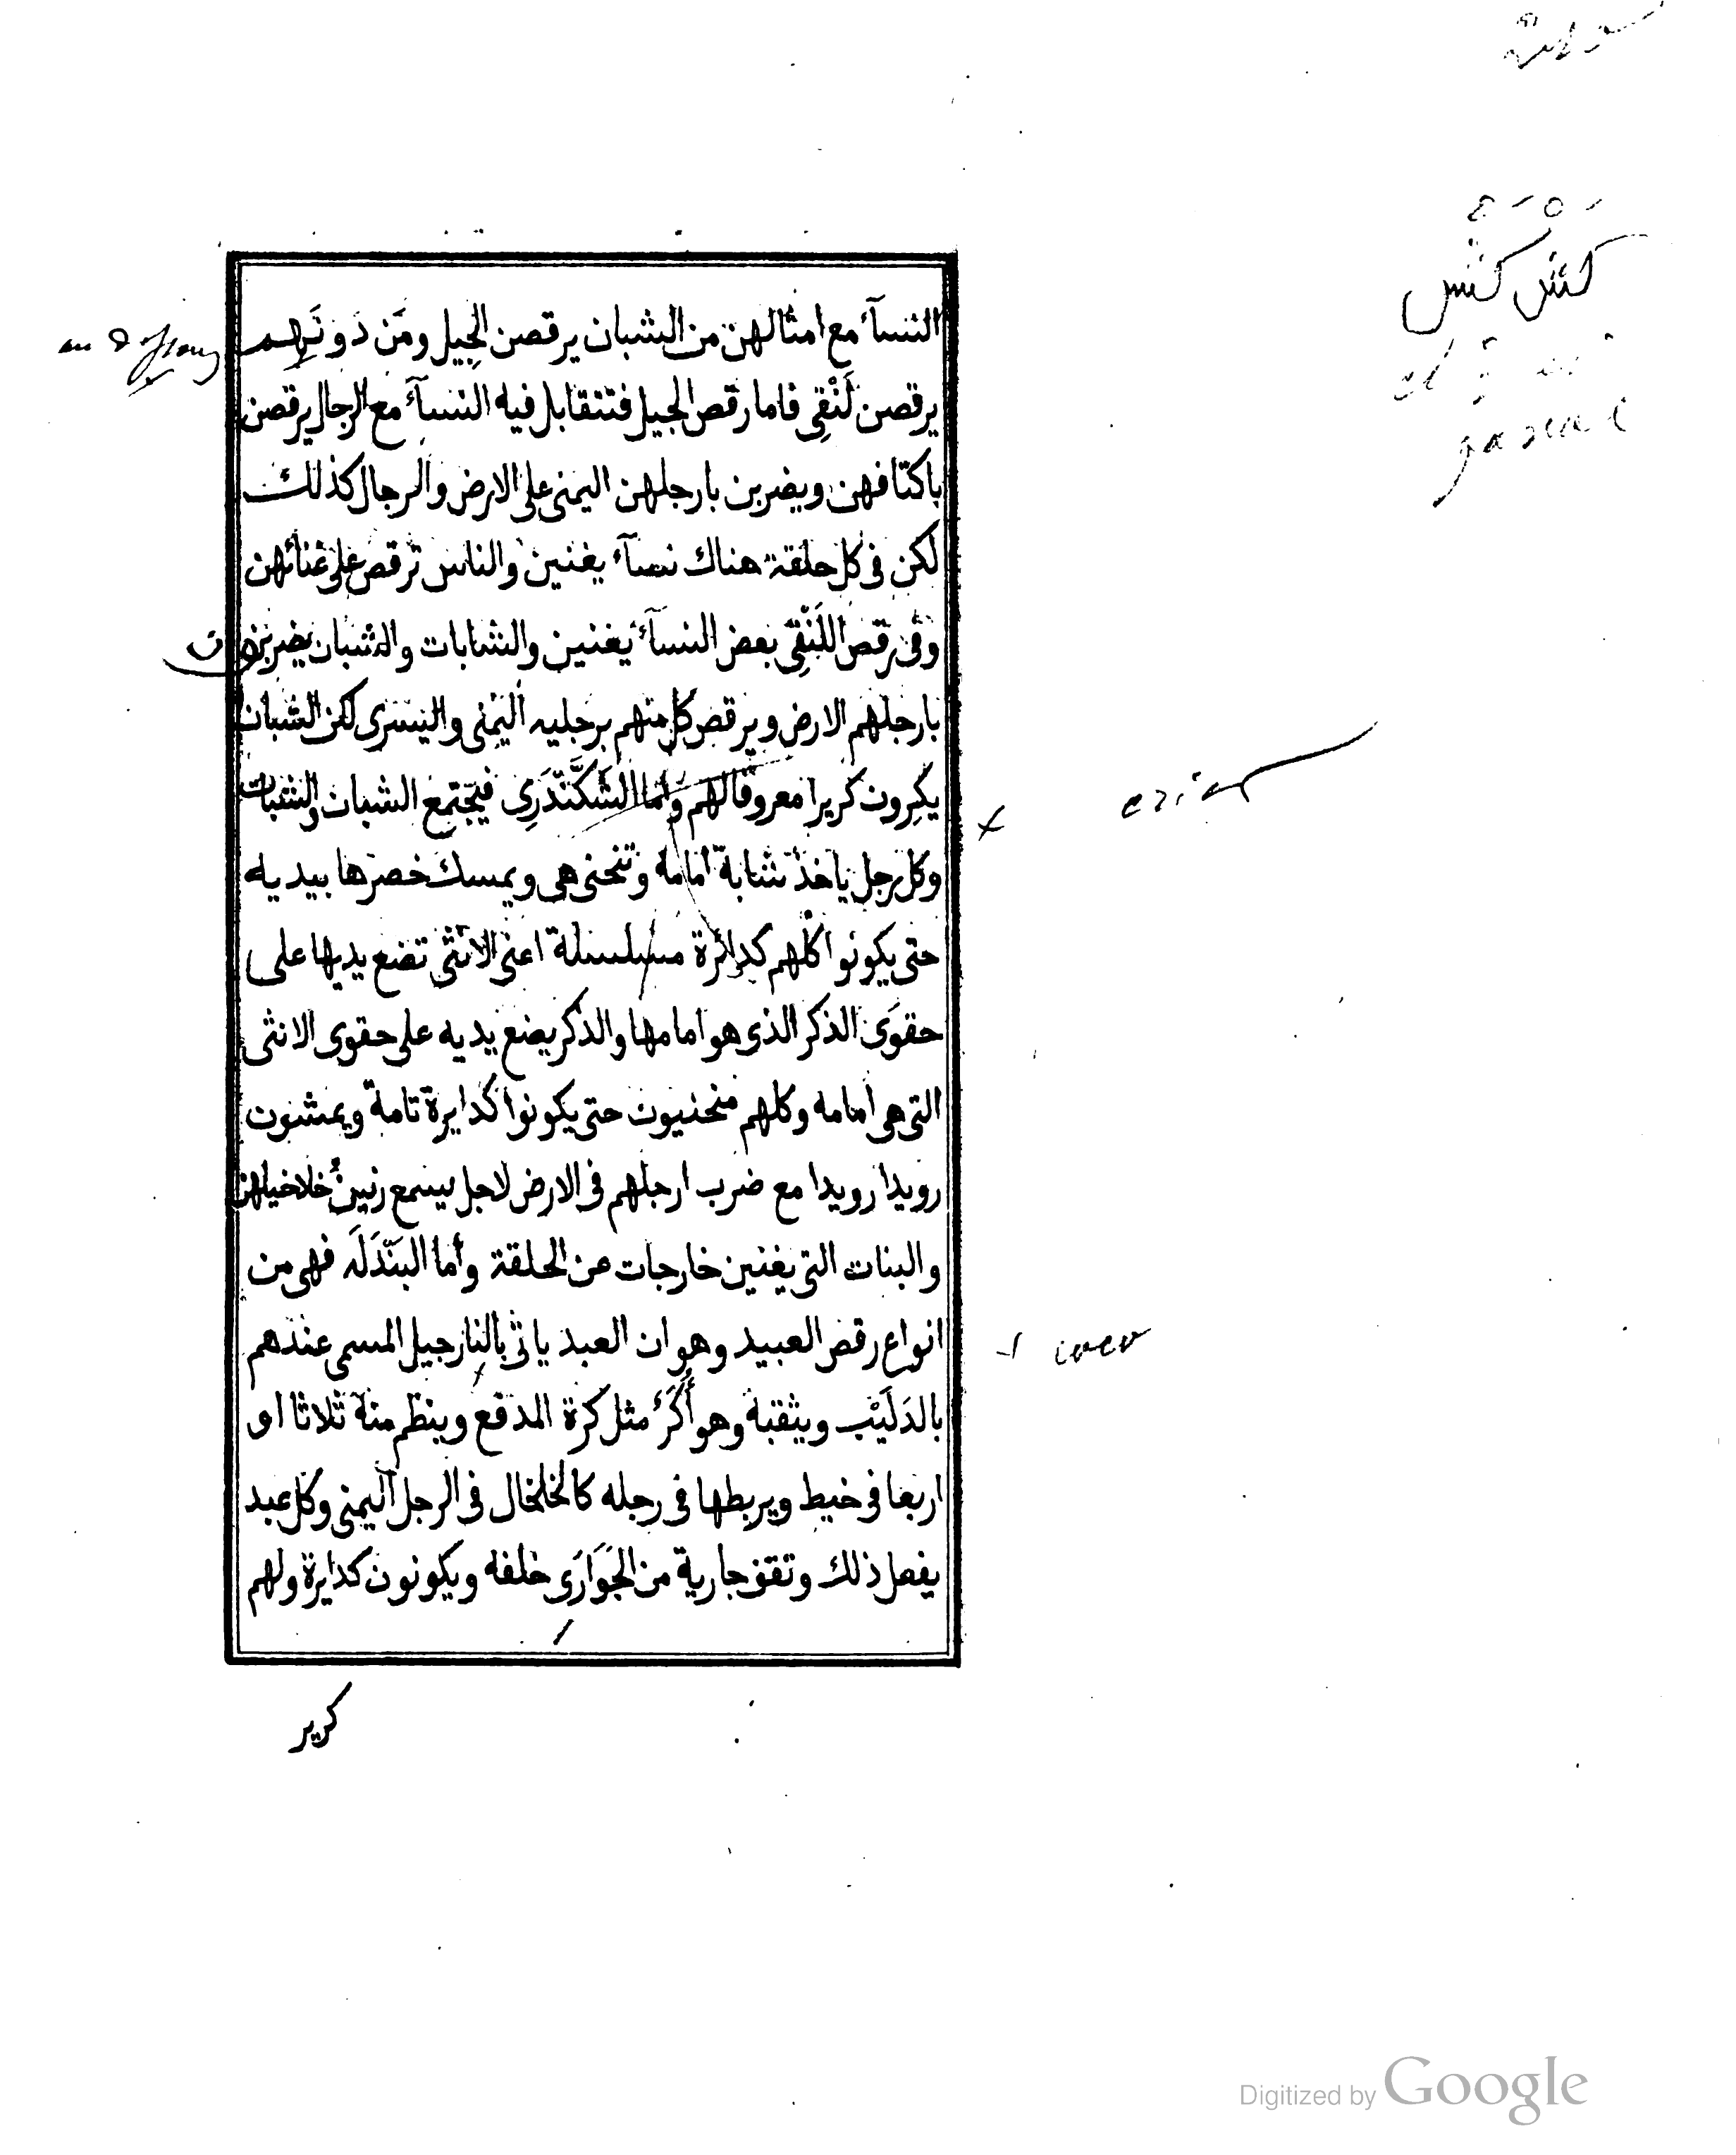 كَشْ كَشْ
النسآء مع امثالهن من الشبان يرقصن الجِيل ومَن دَونَهم
يرقصن لَنْقِى فاما رقص الجيل فتتقابل فيه النسآء مع الرجال يرقصن
باكتافهن ويضربن بارجلهن اليمنى على الارض والرجال كذلك
لكن فى كل حلقة هناك نسآء يغنين والناس ترقص على غنائهن
وفى رقص اللَنْقِى بعض النسآء يغنين والشابات والشبان يضربون
بارجلهم الارض ويرقص كل منهم برجليه اليمنى واليسرى لكن الشبان
يكِرون كريرا معروفا لهم واما الشَكَّنْدَرِى فيجتمع الشبان والشبات
وكل رجل ياخذ شابة امامه وتنحنى هى ويمسك خصرها بيديه
حتى يكونوا كلهم كدائرة مسلسلة اعنى الانثى تضع يديها على
حقوَى الذكر الذى هو امامها والذكر يضع يديه على حقوى الانثى
التى هى امامه وكلهم منحنيون حتى يكونوا كدايرة تامة ويمشون
رويدا رويدا مع ضرب ارجلهم فى الارض لاجل يسمع رنين خلاخيلهن
والبنات التى يغنين خارجات عن الحلقة وأما البَنْدَلَه فهى من
انواع رقص العبيد وهو ان العبد ياتى بالنارجيل المسمى عندهم
بالدَلَيْب ويثقبه وهو أُكَرٌ مثل كرة المدفع وينظم منه ثلاثا او
اربعا فى خيط ويربطها فى رجله كالخلخال فى الرجل اليمنى وكل عبد
يفعل ذلك وتقف جارية من الجَوَارَى خلفه ويكونون كدايرة ولهم
كرير
Digitized by Google